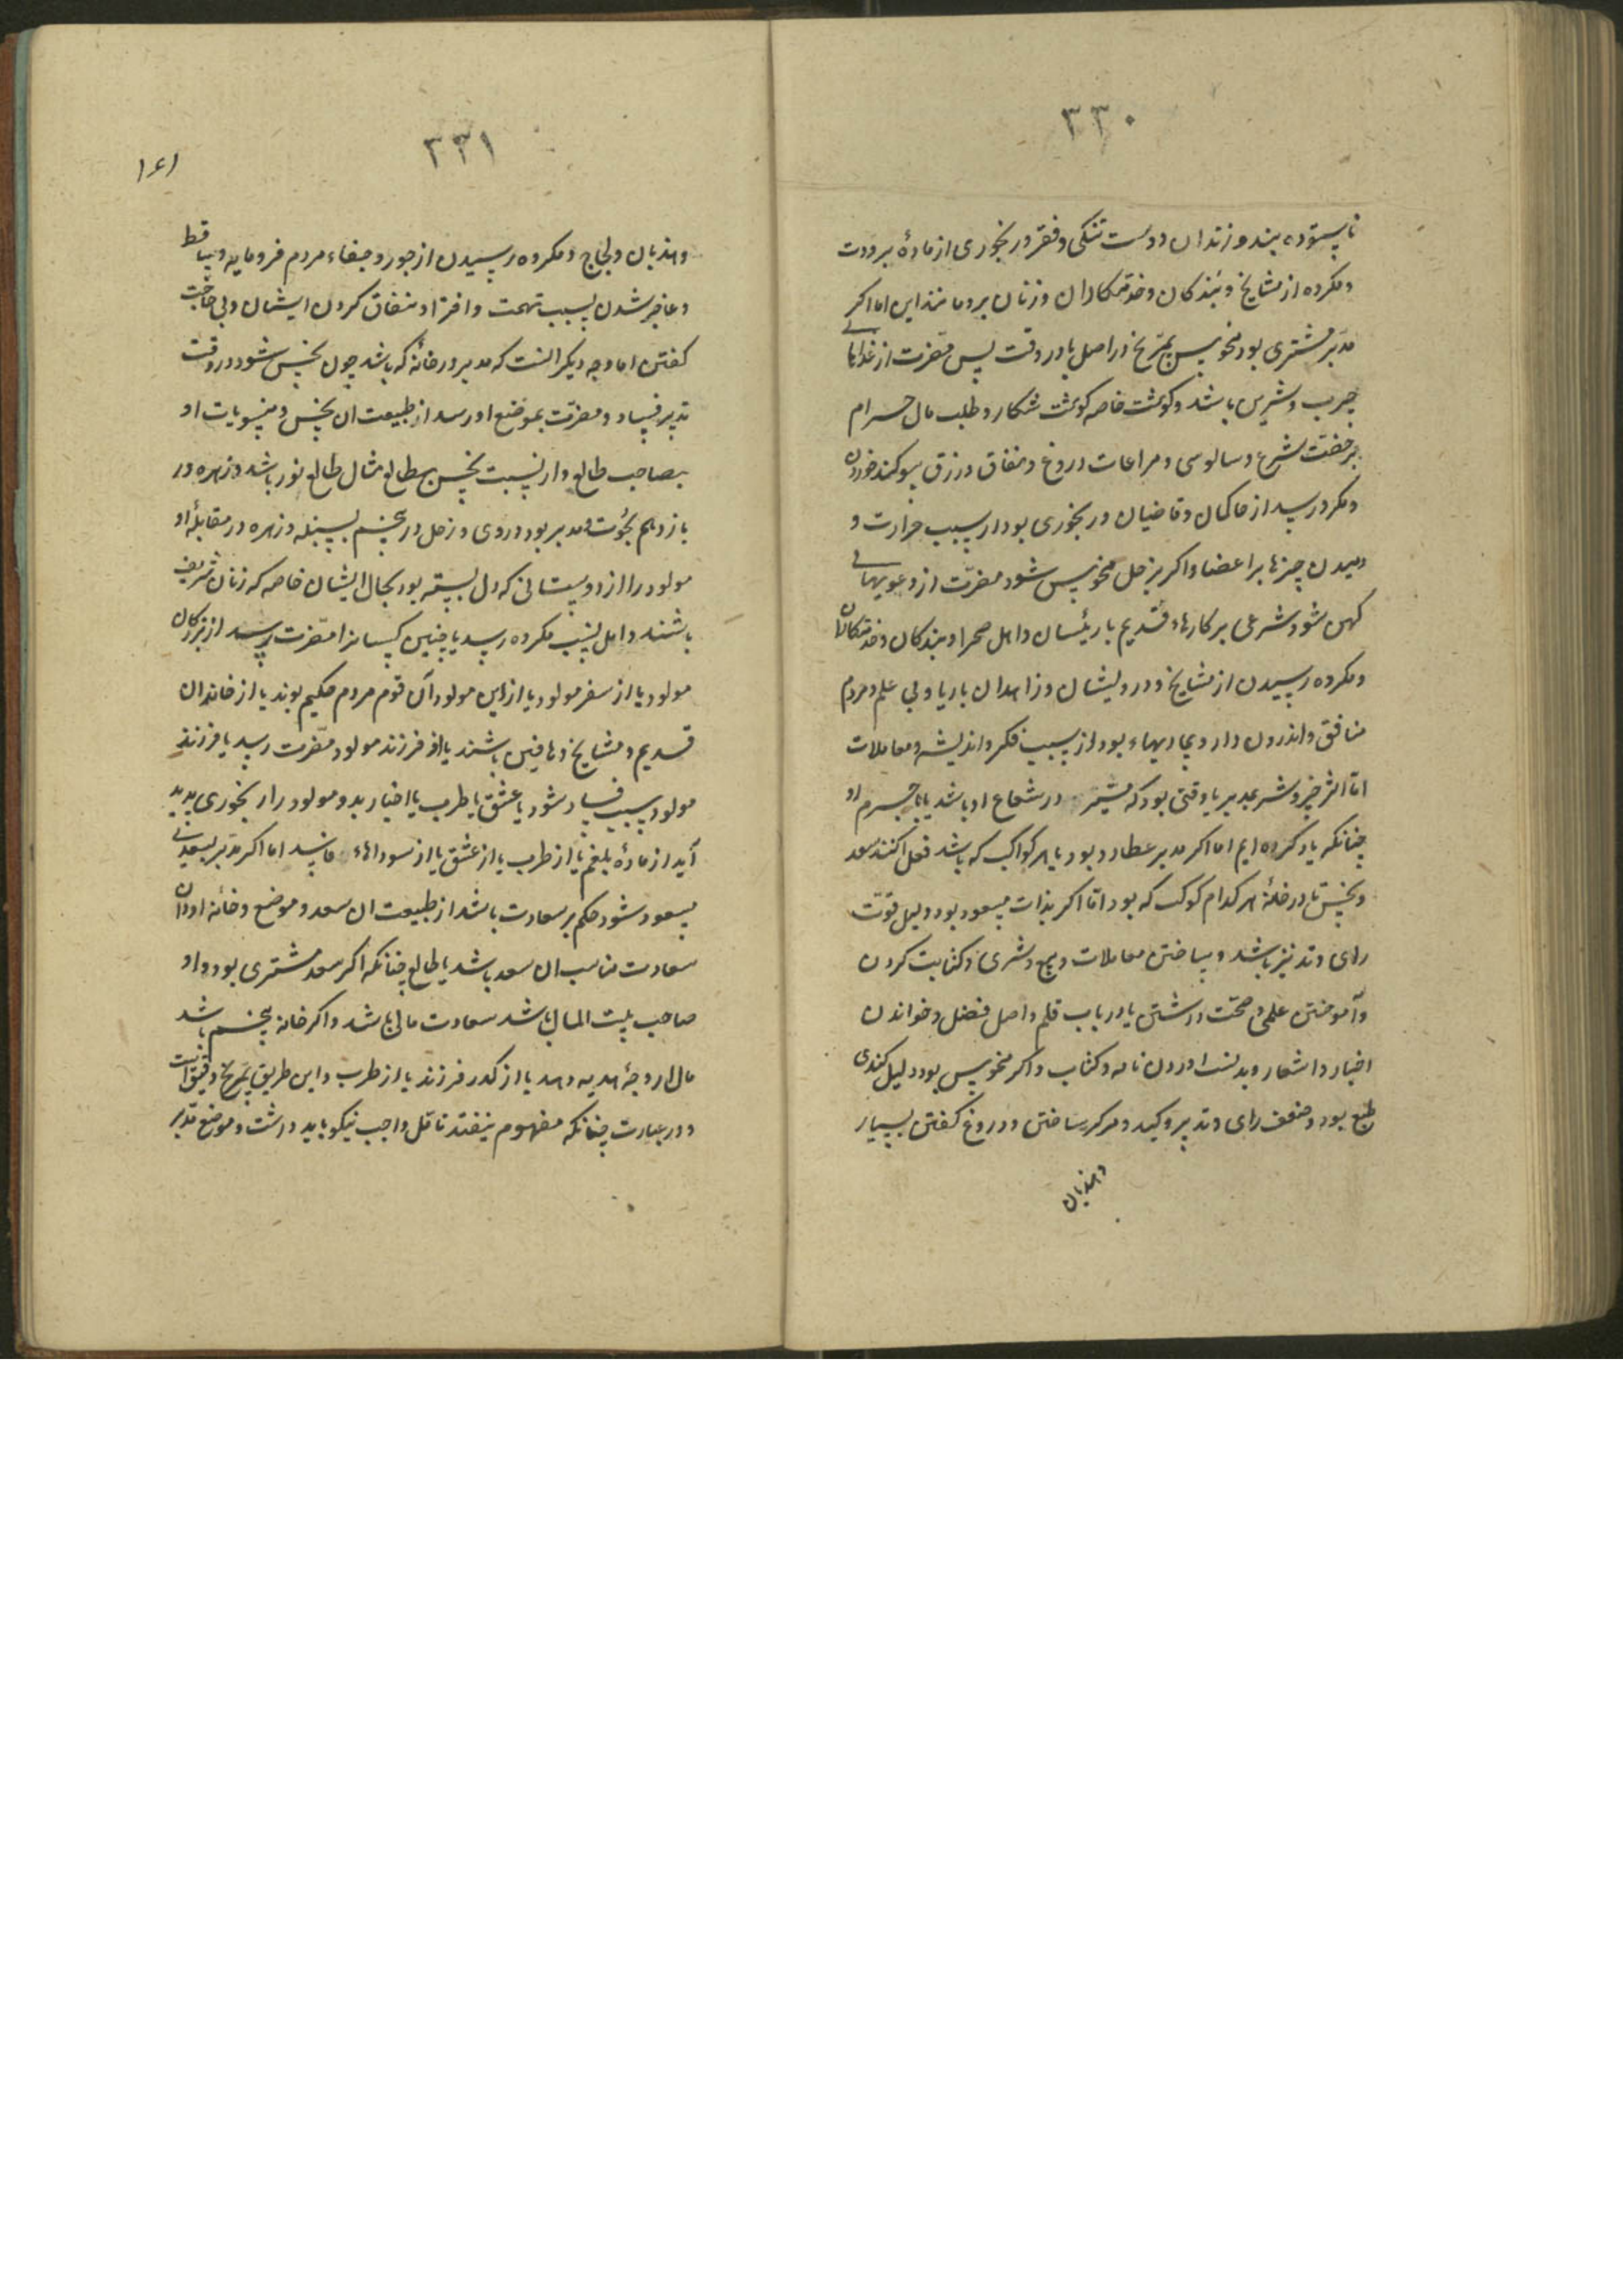 ۳۳۰
ناپسندیده بیند و زندان و دست تنگی و فقر و رنجوری از مادهٔ برودت
و مکروه از مشایخ و بندگان و خدمتکاران و زنان برو مانند این اما اگر
مدبر مشتری بود منحوس بمریخ در اصل یا در وقت پس مضرت از غذاهایی
چرب و شیرین باشد و گوشت خاصه گوشت شکار و طلب مال حرام
بر خفت شرع و سالوسی و مراعات دروغ و نفاق و رزق سوگند خوردن
و مکروه رسد از حاکمان و قاضیان و رنجوری بود از سبب حرارت و
دمیدن چیزها بر اعضا و اگر بزحل منحوس شود مضرت از دعویهایی
کهن شود شرعی بر کارهاء قدیم با رئیسان و اهل صحرا و بندگان و خدمتکاران
و مکروه رسیدن از مشایخ و درویشان و زاهدان با ریا و بی علم و مردم
منافق و اندرون دار و بیماریهاء بود از سبب فکر و اندیشه و معاملات
اما اثر خیر و شر بمدبر یا وقتی بود که مسیر در شعاع او باشد یا با جرم او
چنانکه یاد کرده ایم اما اگر مدبر عطارد بود یا هر کواکب که باشد فعل کنند سعد
و نحس تا در خانهٔ هر کدام کوکب که بود اما اگر بذات مسعود بود دلیل قوت
رای و تدبیر باشد و بساختن معاملات و بیع و شری و کتابت کردن
و آموختن علمی و صحت داشتن با ارباب قلم و اهل فضل و خواندن
اخبار و اشعار و بدست آوردن نامه و کتاب و اگر منحوس بود دلیل کندی
طبع بود و ضعف رای و تدبیر و کید و مکر ساختن و دروغ گفتن بسیار
و هذیان
۳۳۱
۱۶۱
و هذیان و لجاج و مکروه رسیدن از جور و جفاء مردم فرومایه و ساقط
و عاجز شدن بسبب تهمت و افترا و نفاق کردن ایشان و بی حاجت
گفتن اما وجه دیگر آنست که مدبر در خانهٔ که باشد چون نحس شود در وقت
تدبیر فساد و مضرت بموضع او رسد از طبیعت آن نحس و منسوبات او
بصاحب طالع و از نسبت نحس بطالع مثال طالع ثور باشد و زهره در
یازدهم بحوت و مدبر بود در وی و زحل در پنجم بسنبله و زهره در مقابلهٔ او
مولود را از دوستانی که دل بسته بود بجمال ایشان خاصه که زنان شریف
باشند و اهل نسب مکروه رسد یا چنین کسانرا مضرت رسد از بزرگان
مولود یا از سفر مولود یا از این مولود آن قوم مردم حکیم بوند یا از خاندان
قدیم و مشایخ و دهاقین باشند یا از فرزند مولود مضرت رسد یا فرزند
مولود بسبب فساد شود یا عشق یا طرب یا اخبار بد و مولود را رنجوری پدید
آید از مادهٔ بلغم یا از طرب یا از عشق یا از سوداهاء فاسد اما اگر مدبر بسعدی
مسعود شود حکم بر سعادت باشد از طبیعت آن سعد و موضع و خانهٔ او و آن
سعادت مناسب آن سعد باشد یا طالع چنانکه اگر سعد مشتری بود و او
صاحب بیت المال باشد سعادت مالی باشد و اگر خانه پنجم باشد
مال از وجهٔ هدیه دهد یا از گذر فرزند یا از طرب و این طریق بتمریخ دقیق است
و در عبارت چنانکه مفهوم نیفتد تامل واجب نیکو باید داشت و موضع مدبر